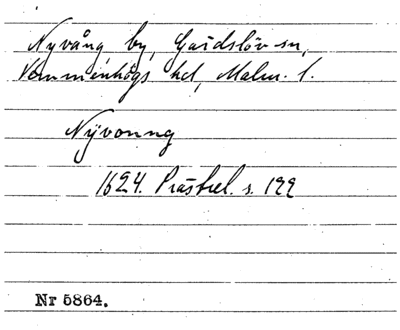 Nyvång by, Gärdslöv sn,
Vemmenhögs hd, Malm. l.
Nÿvonng
1624. Prästrel. s. 122
Nr 5864.